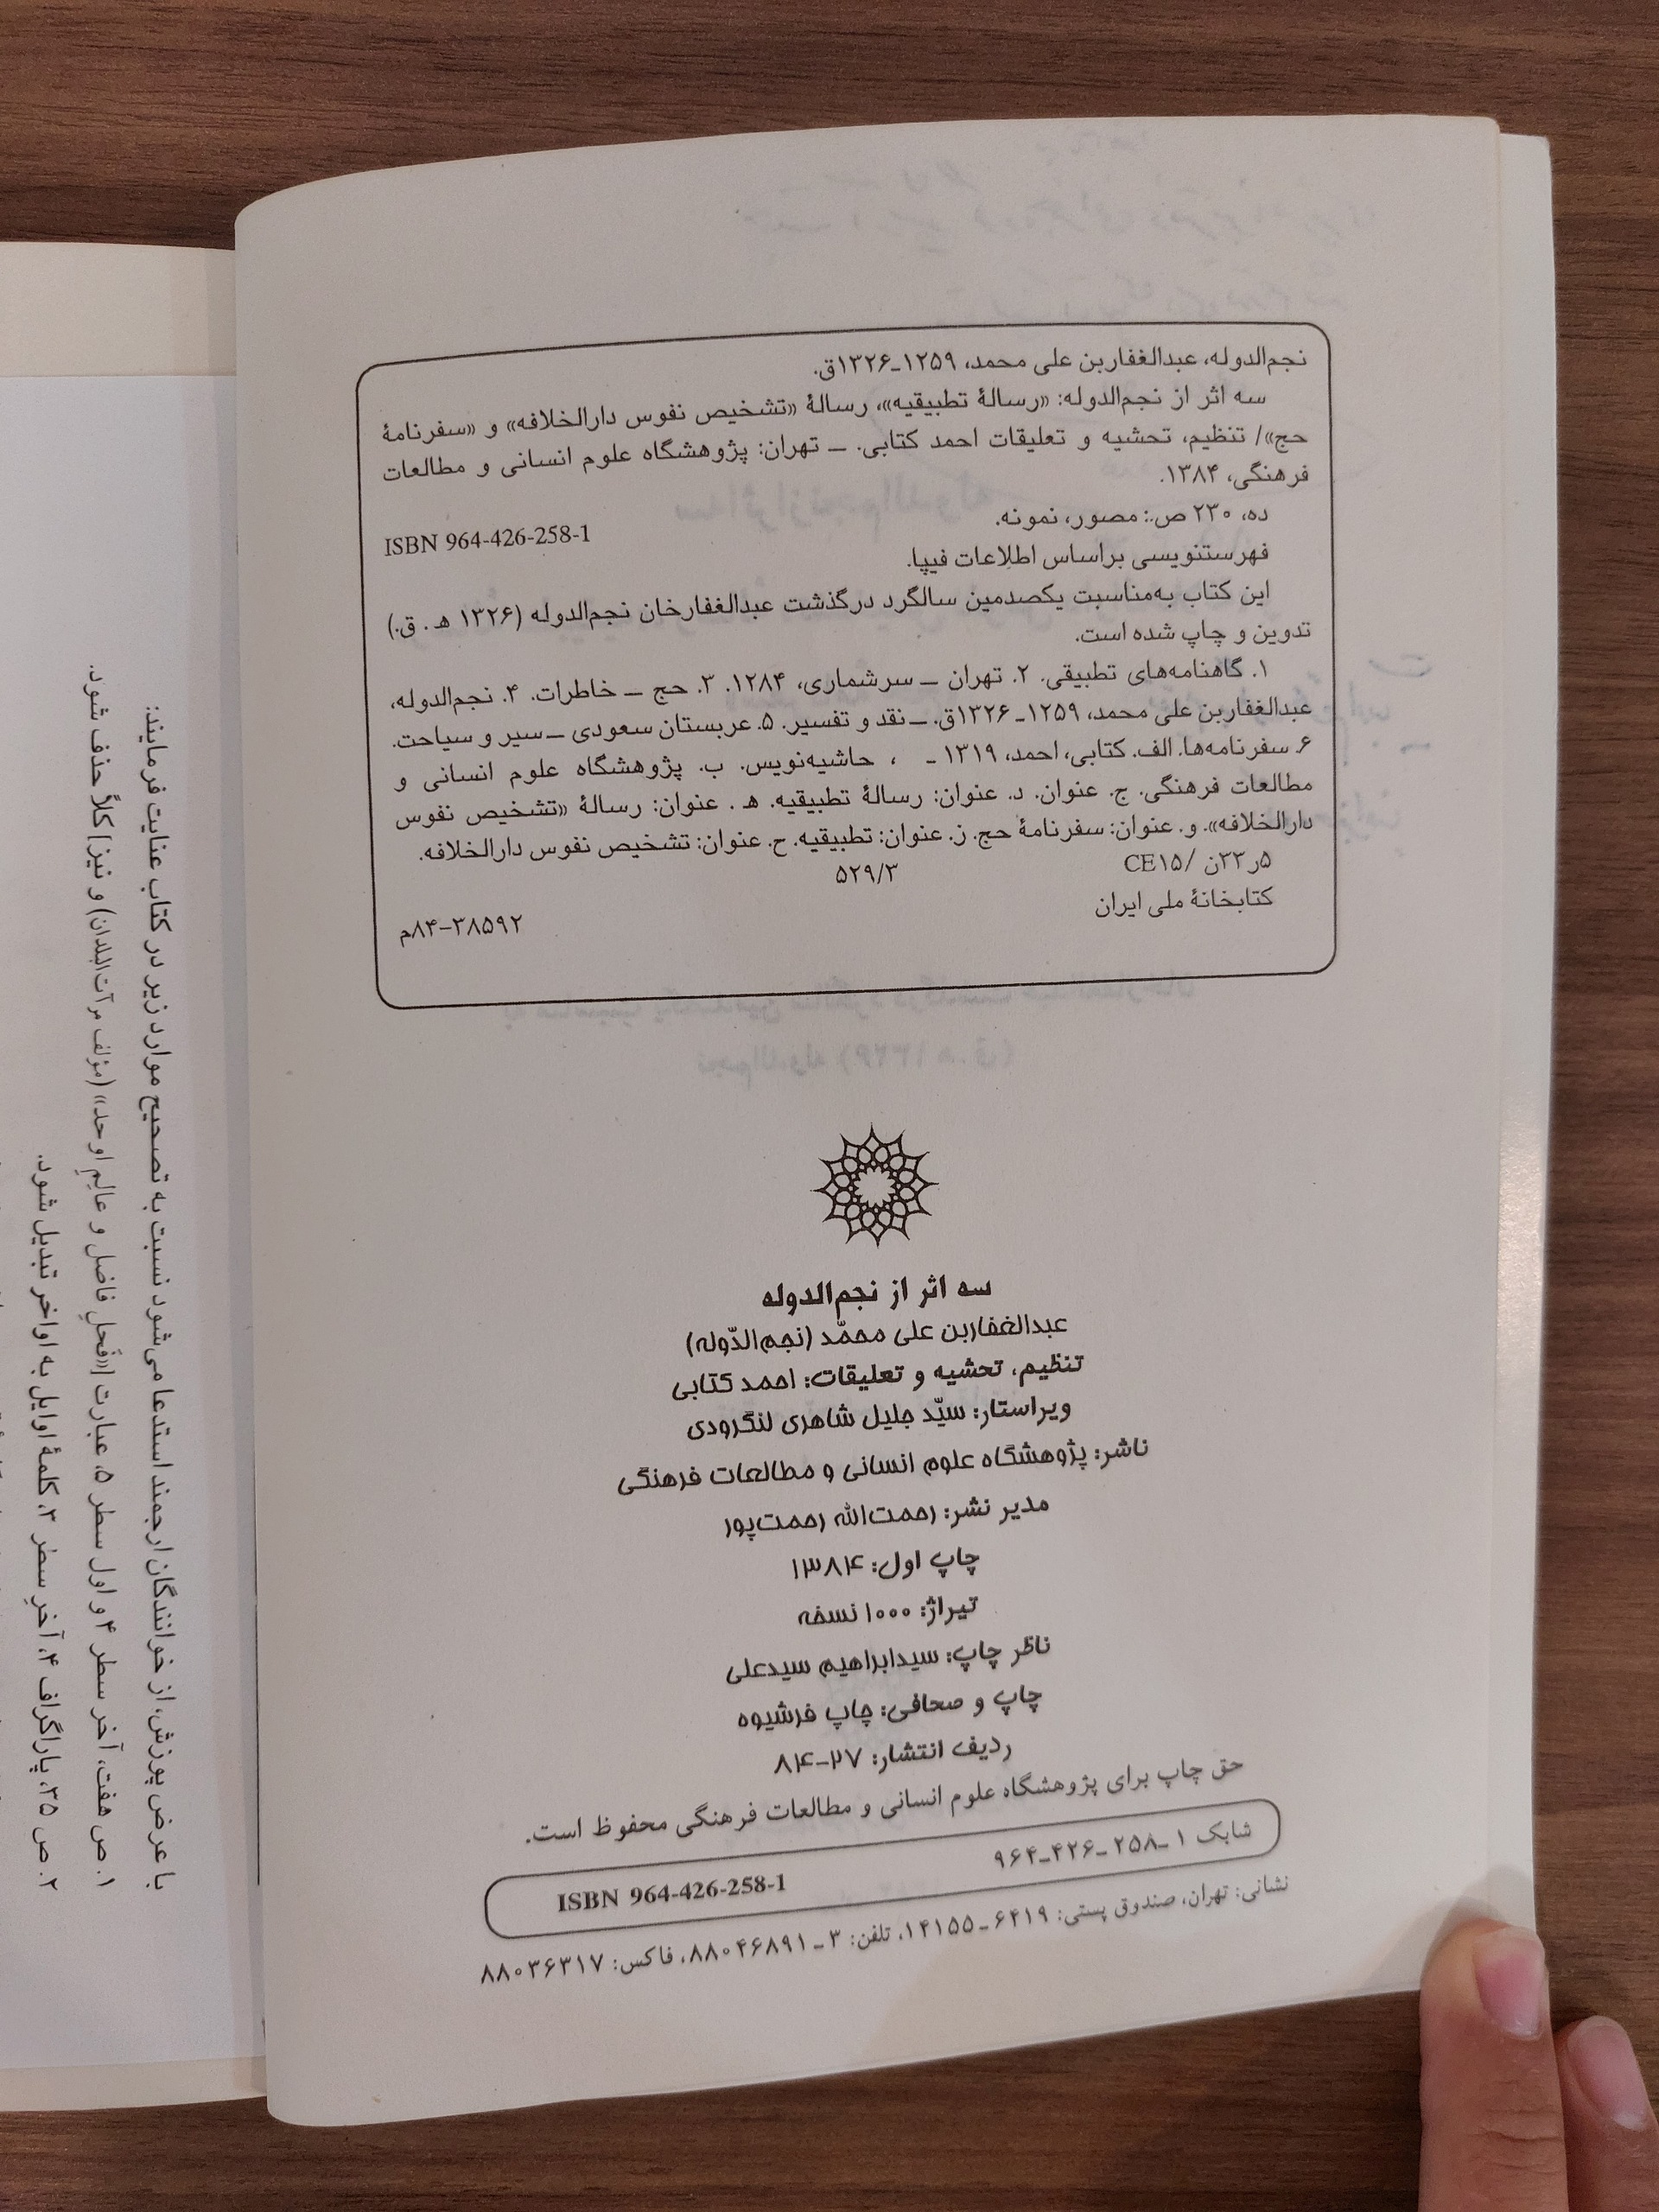 نجم‌الدوله، عبدالغفاربن علی محمد، ۱۲۵۹ـ۱۳۲۶ق.
سه اثر از نجم‌الدوله: «رسالهٔ تطبیقیه»، رسالهٔ «تشخیص نفوس دارالخلافه» و «سفرنامهٔ
حج»/ تنظیم، تحشیه و تعلیقات احمد کتابی. ـ تهران: پژوهشگاه علوم انسانی و مطالعات
فرهنگی، ۱۳۸۴.
ده، ۲۳۰ ص.: مصور، نمونه. ISBN 964-426-258-1
فهرستنویسی براساس اطلاعات فیپا.
این کتاب به‌مناسبت یکصدمین سالگرد درگذشت عبدالغفارخان نجم‌الدوله (۱۳۲۶ هـ . ق.)
تدوین و چاپ شده است.
۱. گاهنامه‌های تطبیقی. ۲. تهران ـ سرشماری، ۱۲۸۴. ۳. حج ـ خاطرات. ۴. نجم‌الدوله،
عبدالغفاربن علی محمد، ۱۲۵۹ـ۱۳۲۶ق. ـ نقد و تفسیر. ۵. عربستان سعودی ـ سیر و سیاحت.
۶. سفرنامه‌ها. الف. کتابی، احمد، ۱۳۱۹ ـ ، حاشیه‌نویس. ب. پژوهشگاه علوم انسانی و
مطالعات فرهنگی. ج. عنوان. د. عنوان: رسالهٔ تطبیقیه. هـ . عنوان: رسالهٔ «تشخیص نفوس
دارالخلافه». و. عنوان: سفرنامهٔ حج. ز. عنوان: تطبیقیه. ح. عنوان: تشخیص نفوس دارالخلافه.
۵ر۳۳ن /CE۱۵ ۵۲۹/۳
کتابخانهٔ ملی ایران ۳۸۵۹۲–۸۴م
سه اثر از نجم‌الدوله
عبدالغفاربن علی محمّد (نجم‌الدّوله)
تنظیم، تحشیه و تعلیقات: احمد کتابی
ویراستار: سیّد جلیل شاهری لنگرودی
ناشر: پژوهشگاه علوم انسانی و مطالعات فرهنگی
مدیر نشر: رحمت‌الله رحمت‌پور
چاپ اول: ۱۳۸۴
تیراژ: ۱۰۰۰ نسخه
ناظر چاپ: سیدابراهیم سیدعلی
چاپ و صحافی: چاپ فرشیوه
ردیف انتشار: ۲۷-۸۴
حق چاپ برای پژوهشگاه علوم انسانی و مطالعات فرهنگی محفوظ است.
شابک ۱ـ۲۵۸ـ۴۲۶ـ۹۶۴ ISBN 964-426-258-1
نشانی: تهران، صندوق پستی: ۶۴۱۹ـ۱۴۱۵۵، تلفن: ۳ـ۸۸۰۴۶۸۹۱، فاکس: ۸۸۰۳۶۳۱۷
با عرض پوزش، از خوانندگان ارجمند استدعا می‌شود نسبت به تصحیح موارد زیر در کتاب عنایت فرمایند:
۱. ص هفت، آخر سطر ۴ و اول سطر ۵، عبارت [«فحلِ فاضل و عالِمِ اوحد» (مؤلف مرآت‌البلدان) و نیز] کلاً حذف شود.
۲. ص ۳۵، پاراگراف ۴، آخرِ سطر ۳، کلمهٔ اوایل به اواخر تبدیل شود.